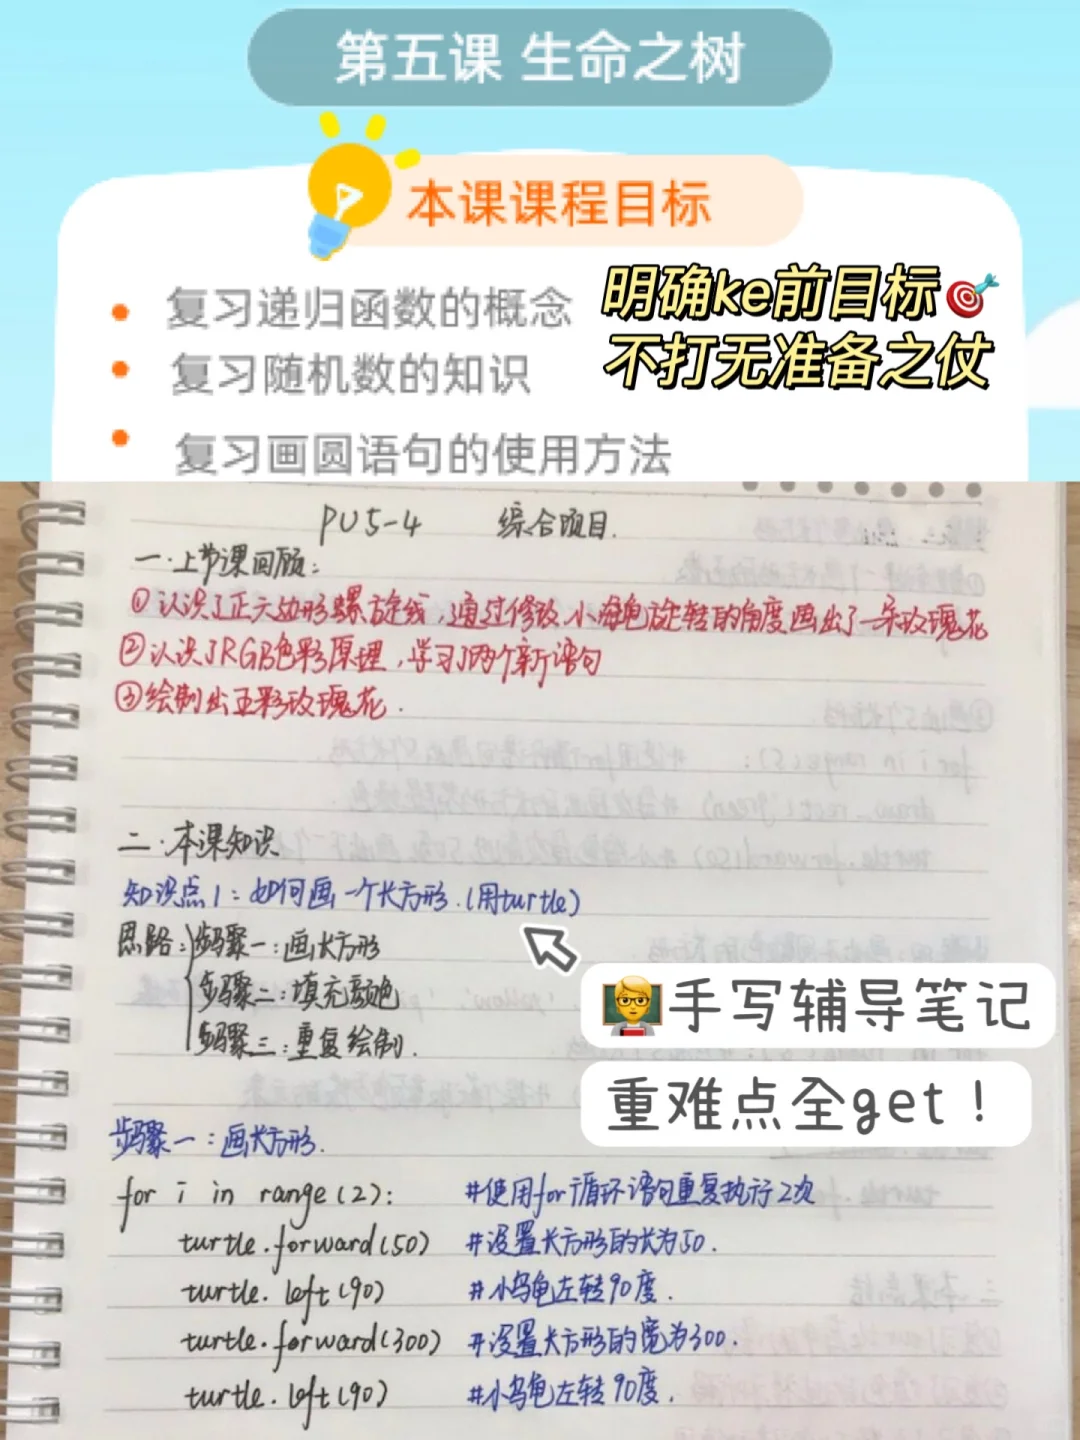 第五课 生命之树
本课课程目标
明确ke前目标
不打无准备之仗
复习递归函数的概念
复习随机数的知识
复习画圆语句的使用方法
PU5-4 综合项目.
一.上节课回顾:
①认识了正六边形螺旋线,通过修改小海龟旋转的角度画出了一朵玫瑰花
②认识了RGB色彩原理,学习了两个新语句
③绘制出五彩玫瑰花.
二.本课知识
知识点1:如何画一个长方形.(用turtle)
思路:步骤一:画长方形
步骤二:填充颜色
步骤三:重复绘制.
手写辅导笔记
重难点全get!
步骤一:画长方形.
for i in range(2): #使用for循环语句重复执行2次
turtle.forward(50) #设置长方形的长为50.
turtle.left(90) #小乌龟左转90度.
turtle.forward(300) #设置长方形的宽为300.
turtle.left(90) #小乌龟左转90度.